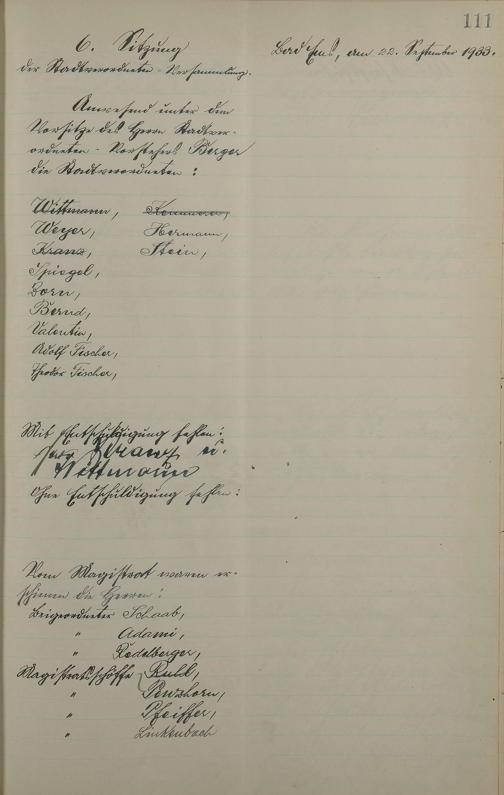 111
6. Sitzung
der Stadtverordneten-Versammlung.
Bad Ems, den 22. September 1933.
Anwesend unter dem
Vorsitze des Herrn Stadtver-
ordneten-Vorstehers Berger
die Stadtverordneten:
Wittmann,
Weyer, Hermann,
Kranz, Stein,
Spiegel,
Born,
Bernd,
Valentin,
Adolf Fischer,
Theodor Fischer,
Mit Entschuldigung fehlen:
Kranz u.
Wittmann
Ohne Entschuldigung fehlen:
Vom Magistrat waren er-
schienen die Herren:
Beigeordneter Schaab,
" Adami,
" Redelberger,
Magistratsschöffe Ruhl,
" Penzhorn,
" Pfeiffer,
" Linkenbach